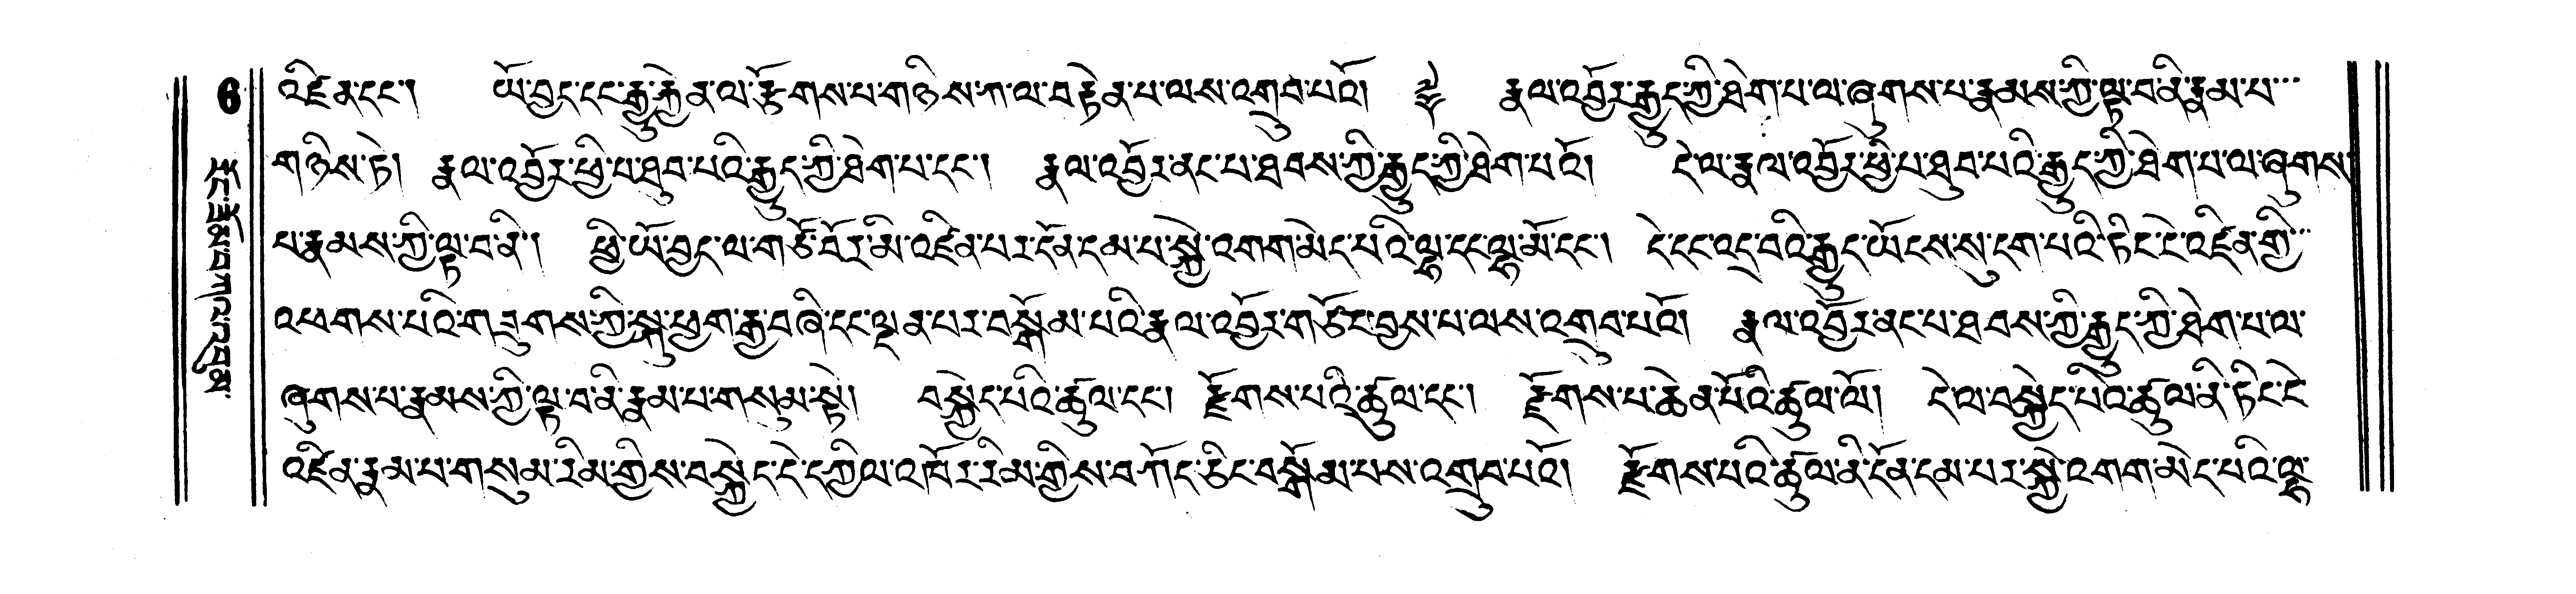 འཛིན་དང་། ཡོ་བྱད་དང་རྒྱུ་རྐྱེན་ལ་རྩོགས་པ་གཉིས་ཀ་ལ་བརྟེན་པ་ལས་འགྲུབ་པའོ། ༈ རྣལ་འབྱོར་རྒྱུད་ཀྱི་ཐེག་པ་ལ་ཞུགས་པ་རྣམས་ཀྱི་ལྟ་བ་ནི་རྣམ་པ་
གཉིས་ཏེ། རྣལ་འབྱོར་ཕྱི་པ་ཐུབ་པའི་རྒྱུད་ཀྱི་ཐེག་པ་དང་། རྣལ་འབྱོར་ནང་པ་ཐབས་ཀྱི་རྒྱུད་ཀྱི་ཐེག་པའོ། དེ་ལ་རྣལ་འབྱོར་ཕྱི་པ་ཐུབ་པའི་རྒྱུད་ཀྱི་ཐེག་པ་ལ་ཞུགས་
པ་རྣམས་ཀྱི་ལྟ་བ་ནི། ཕྱི་ཡོ་བྱད་ལ་གཙོ་བོར་མི་འཛིན་པར་དོན་དམ་པ་སྐྱེ་འགག་མེད་པའི་ལྷ་དང་ལྷ་མོ་དང་། དེ་དང་འདྲ་བའི་རྒྱུད་ཡོངས་སུ་དག་པའི་ཏིང་ངེ་འཛིན་གྱི་
འཕགས་པའི་གཟུགས་ཀྱི་སྐུ་ཕྱག་རྒྱ་བཞི་དང་ལྡན་པར་བསྒོམ་པའི་རྣལ་འབྱོར་གཙོར་བྱས་པ་ལས་འགྲུབ་པའོ། རྣལ་འབྱོར་ནང་པ་ཐབས་ཀྱི་རྒྱུད་ཀྱི་ཐེག་པ་ལ་
ཞུགས་པ་རྣམས་ཀྱི་ལྟ་བ་ནི་རྣམ་པ་གསུམ་སྟེ། བསྐྱེད་པའི་ཚུལ་དང་། རྫོགས་པའི་ཚུལ་དང་། རྫོགས་པ་ཆེན་པོའི་ཚུལ་ལོ། དེ་ལ་བསྐྱེད་པའི་ཚུལ་ནི་ཏིང་ངེ་
འཛིན་རྣམ་པ་གསུམ་རིམ་གྱིས་བསྐྱེད་དེ་དཀྱིལ་འཁོར་རིམ་གྱིས་བཀོད་ཅིང་བསྒོམ་པས་འགྲུབ་པའོ། རྫོགས་པའི་ཚུལ་ནི་དོན་དམ་པར་སྐྱེ་འགག་མེད་པའི་ལྷ་